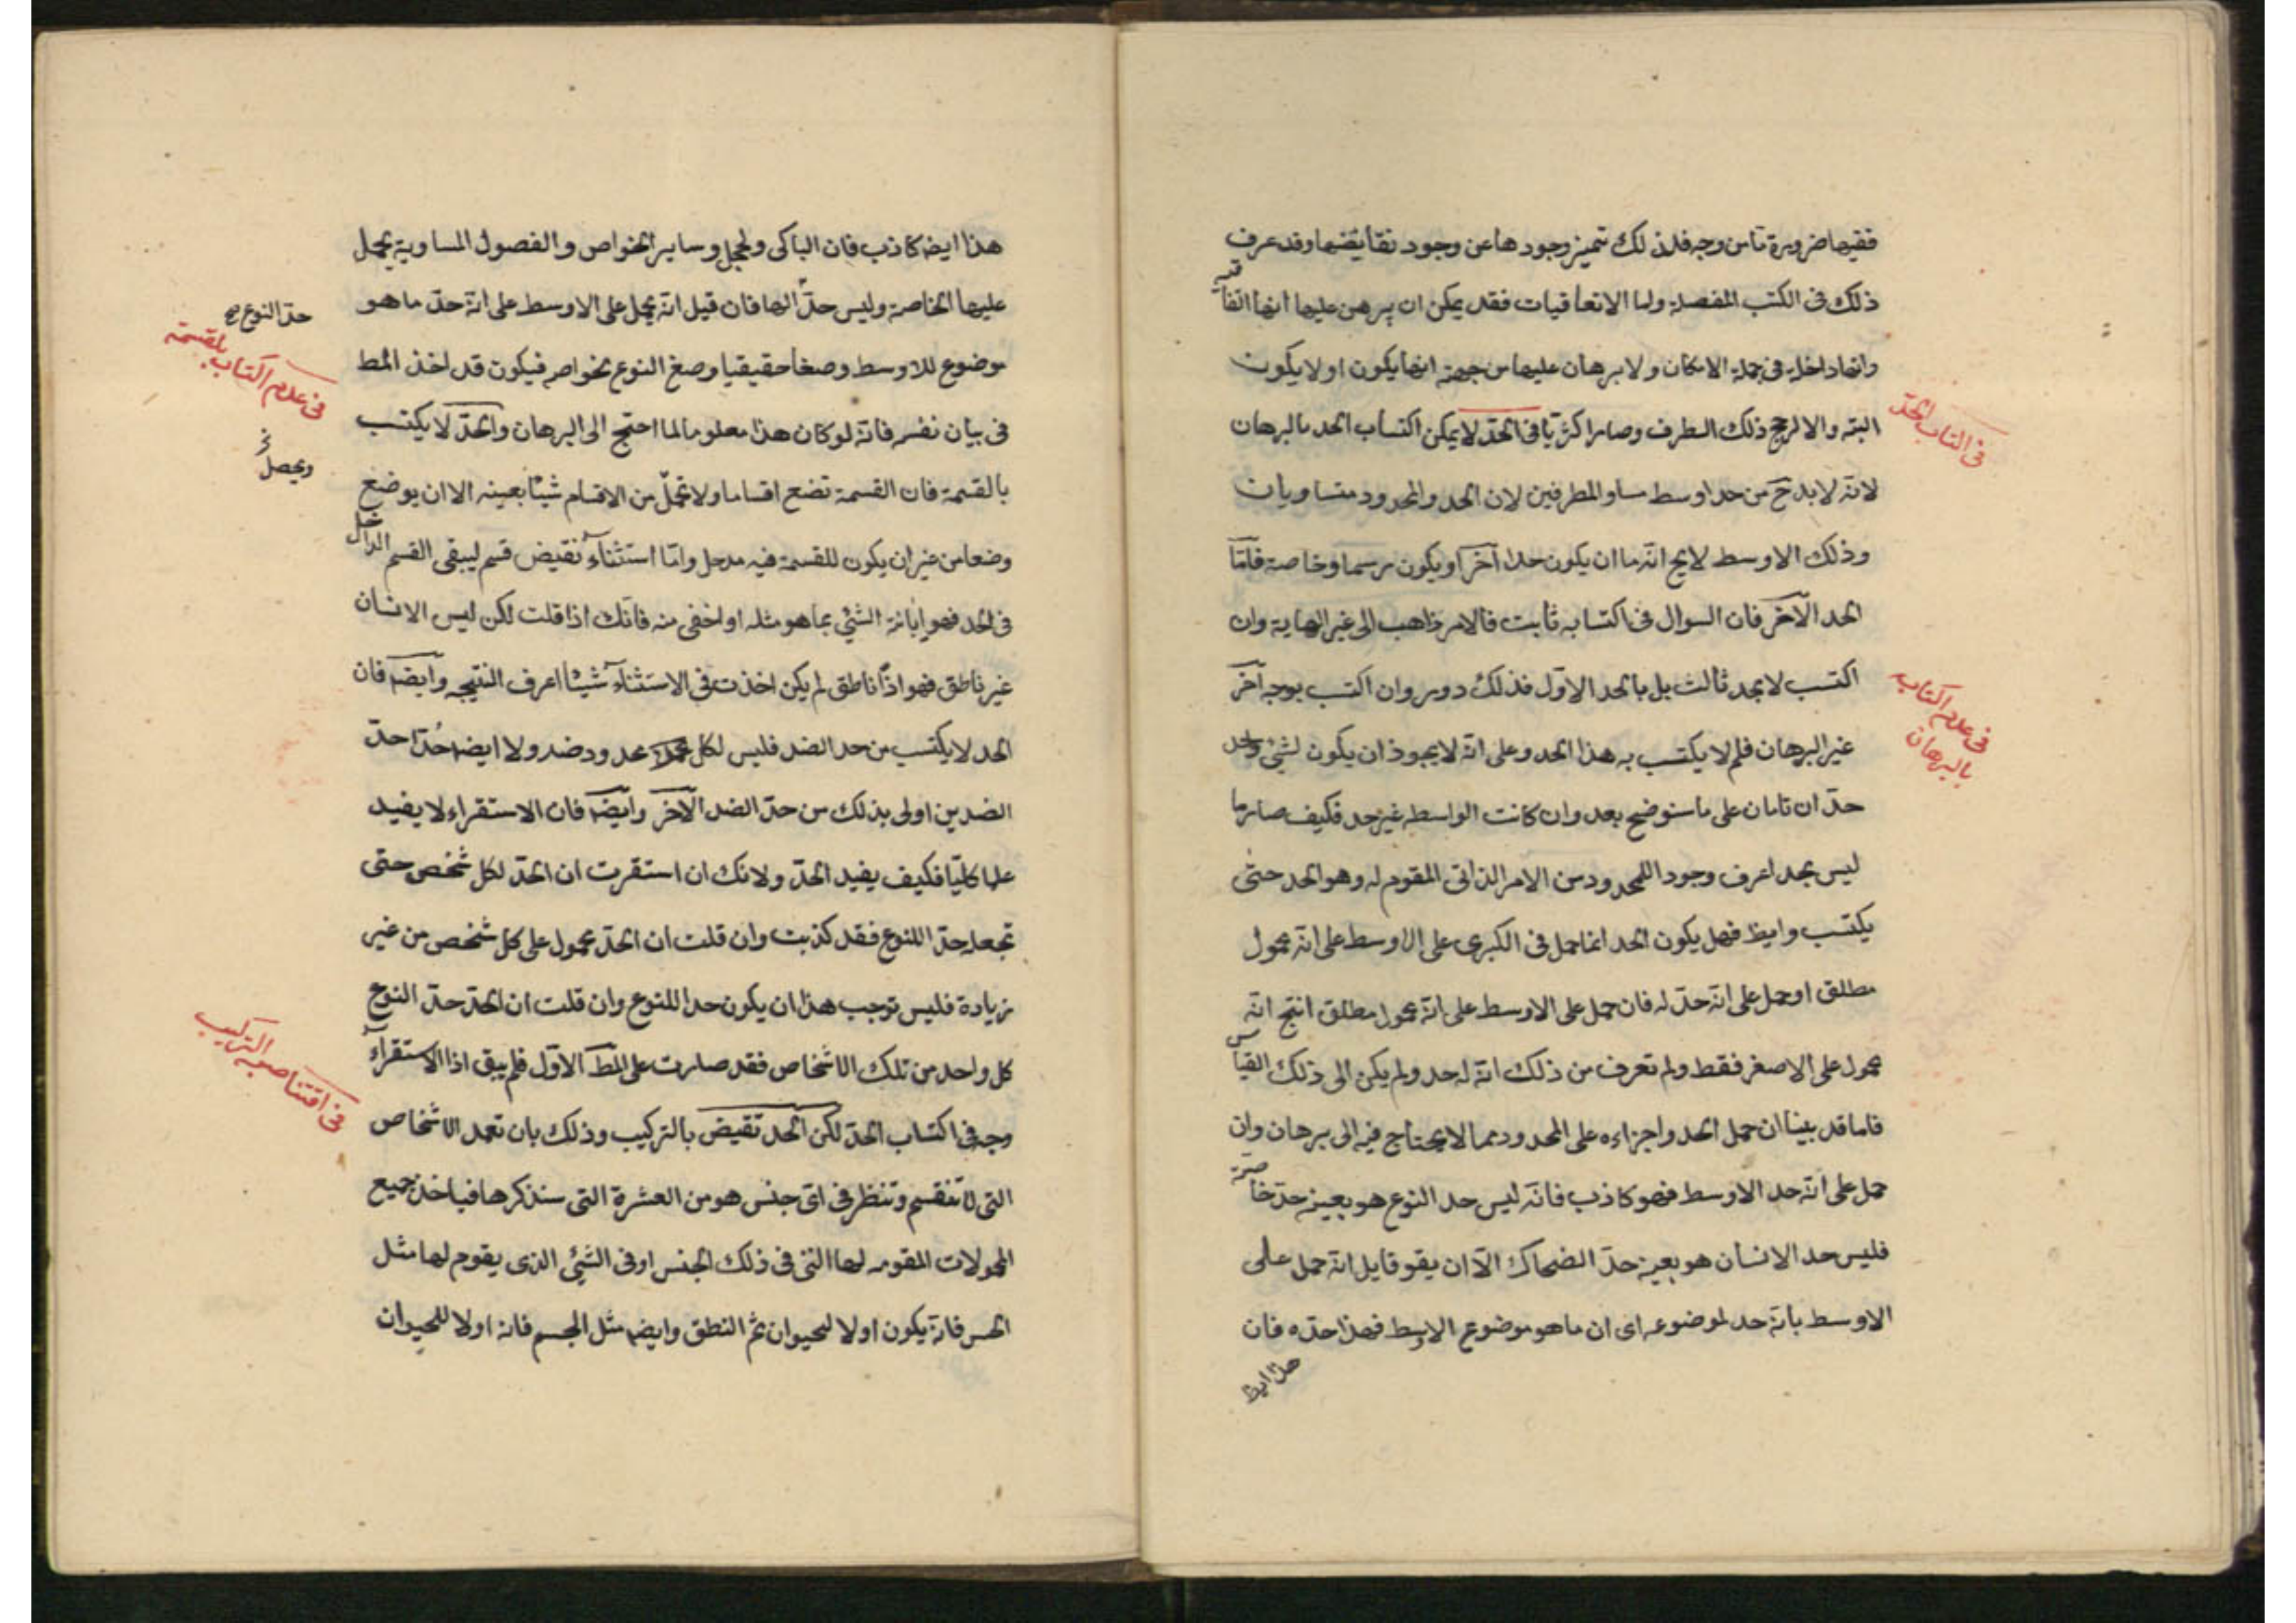 ففيها ضرورة ما من وجه فلذلك تتميز وجودها عن وجود نقائضها وقد عرف
ذلك فى الكتب المفصلة واما الاتفاقيات فقد يمكن ان يبرهن عليها انها اتفاقية
وانها داخلة فى جملة الامكان ولا برهان عليها من جهة انها يكون او لا يكون
البته والا لرجح ذلك الطرف وصار اكثريا فى الحد لا يمكن اكتساب الحد بالبرهان
فى اكتساب الحد
لانه لا بد ح من حد اوسط مساو للطرفين لان الحد والمحدود متساويان
وذلك الاوسط لا يخ انه ما ان يكون حدا آخر او يكون رسما وخاصة فاما
الحد الآخر فان السوال فى اكتسابه ثابت فالامر ذاهب الى غير النهاية وان
اكتسب لا بحد ثالث بل بالحد الاول فذلك دور وان اكتسب بوجه آخر
فى عدم اكتساب
بالبرهان
غير البرهان فلم لا يكتسب به هذا الحد وعلى انه لا يجوز ان يكون لشئ واحد
حدان تامان على ما سنوضح بعد وان كانت الواسطه غير حد فكيف صار ما
ليس بحد اعرف وجود اللمحدود من الامر الذاتى المقوم له وهو الحد حتى
يكتسب وايظ فهل يكون الحد انما حمل فى الكبرى على الاوسط على انه محمول
مطلق او حمل على انه حد له فان حمل على الاوسط على انه محمول مطلق انتج انه
محمول على الاصغر فقط ولم تعرف من ذلك انه له حد ولم يكن الى ذلك القياس
فاما قد بينا ان حمل الحد واجزاءه على المحدود مما لا يحتاج فيه الى برهان وان
حمل على انه حد الاوسط فهو كاذب فانه ليس حد النوع هو بعينه حد خاصته
فليس حد الانسان هو بعينه حد الضحاك الا ان يقو قايل انه حمل على
الاوسط بانه حد لموضوعه اى ان ما هو موضوع الاوسط فهذا حده فان
هذا ايظ
هذا ايضه كاذب فان الباكى والخجل وساير الخواص والفصول المساوية يحمل
عليها الخاصة وليس حدا لها فان قيل انه يحمل على الاوسط على انه حد ما هو
حد النوع صح
موضوع للاوسط وصفا حقيقيا وصغ النوع بخواصه فيكون قد اخذ المط
فى عدم اكتساب بالقسمة
فى بيان نفسه فانه لو كان هذا معلوما لما احتج الى البرهان والحد لا يكتسب
ويحصل
بالقسمة فان القسمة تضع اقساما ولا تحمل من الاقسام شيئا بعينه الا ان يوضع
وضعا من غير ان يكون للقسمة فيه مدخل واما استثناء نقيض قسم ليبقى القسم الداخل
فى الحد فهو إبانة الشئ بما هو مثله او اخفى منه فانك اذا قلت لكن ليس الانسان
غير ناطق فهو اذا ناطق لم يكن اخذت فى الاستثناء شيئا اعرف النتيجه وايضه فان
الحد لا يكتسب من حد الضد فليس لكل محدود ضد ولا ايضه حد احد
الضدين اولى بذلك من حد الضد الآخر وايضه فان الاستقراء لا يفيد
علما كليا فكيف يفيد الحد ولانك ان استقرت ان الحد لكل شخص حتى
تجعله حد اللنوع فقد كذبت وان قلت ان الحد محمول على كل شخص من غير
زيادة فليس توجب هذا ان يكون حدا للنوع وان قلت ان الحد حد النوع
كل واحد من تلك الاشخاص فقد صارت على المط الاول فلم يبق اذا الاستقراء
وجه فى اكتساب الحد لكن الحد تقيض بالتركيب وذلك بان تعمد الاشخاص
التى لا تنقسم وتنظر فى اى جنس هو من العشرة التى سنذكرها فياخذ جميع
المحمولات المقومه لها التى فى ذلك الجنس او فى الشئ الذى يقوم لها مثل
الحس فانه يكون اولا لحيوان ثم النطق وايضه مثل الجسم فانه اولا للحيوان